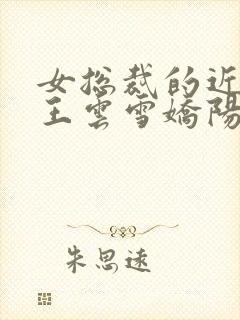 女总裁的近
王雲雪嬌陽
朱思遠